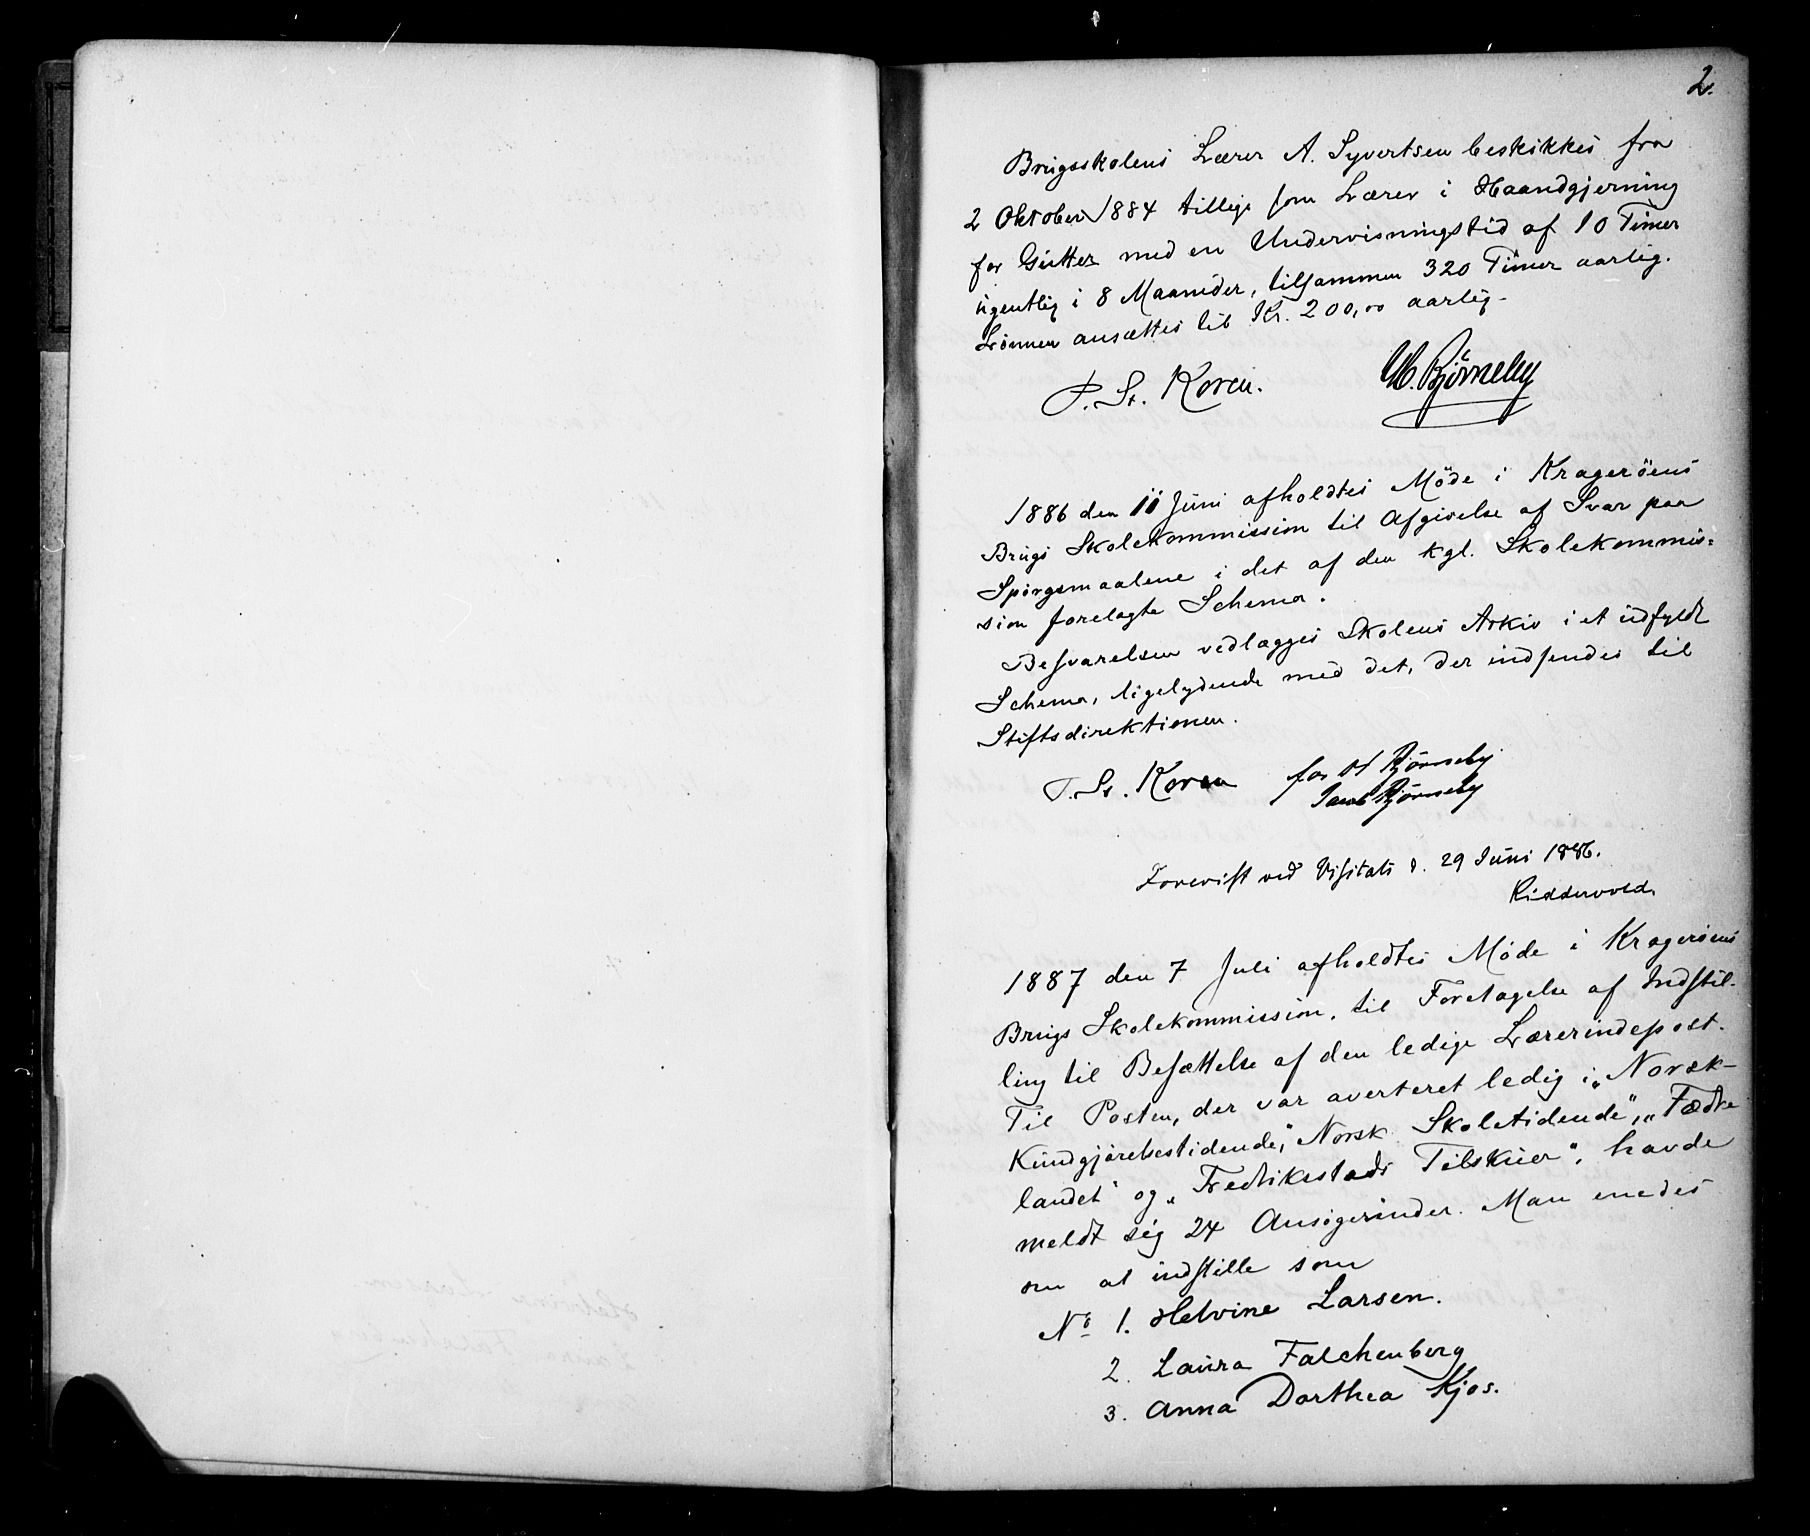 2.
Brugsskolens Lærer A. Syvertsen beskikkes fra
2 Oktober 1884 tillige som Lærer i Haandgjerning
for Gutter med en Undervisningstid af 10 Timer
ugentlig i 8 Maaneder, tilsammen 320 Timer aarlig.
Lønnen ansættes til Kr. 200,00 aarlig.
P. St. Koren. H. Bjørneby
1886 den 11 Juni afholdtes Møde i Kragerøens
Brugs Skolekommission til Afgivelse af Svar paa
Spørgsmaalene i det af den kgl. Skolekommis=
sion forelagte Schema.
Besvarelsen vedlægges Skolens Arkiv i et udfyldt
Schema, ligelydende med det, der indsendes til
Stiftsdirektionen.
P. St. Koren for H Bjørneby
Jacob Bjørneby
Forevist ved Visitats d. 29 Juni 1886.
Riddervold.
1887 den 7 Juli afholdtes Møde i Kragerøens
Brugs Skolekommission, til Foretagelse af Indstil-
ling til Besættelse af den ledige Lærerindepost.
Til Posten, der var averteret ledig i „Norsk-
Kundgjørelsestidende,“ „Norsk Skoletidende“, „Fædre
landet“ og „Fredrikstads Tilskuer“, havde
meldt sig 24 Ansøgerinder. Man enedes
om at indstille som
No 1. Helvine Larsen.
2. Laura Falchenberg
3. Anna Dorthea Kjos.